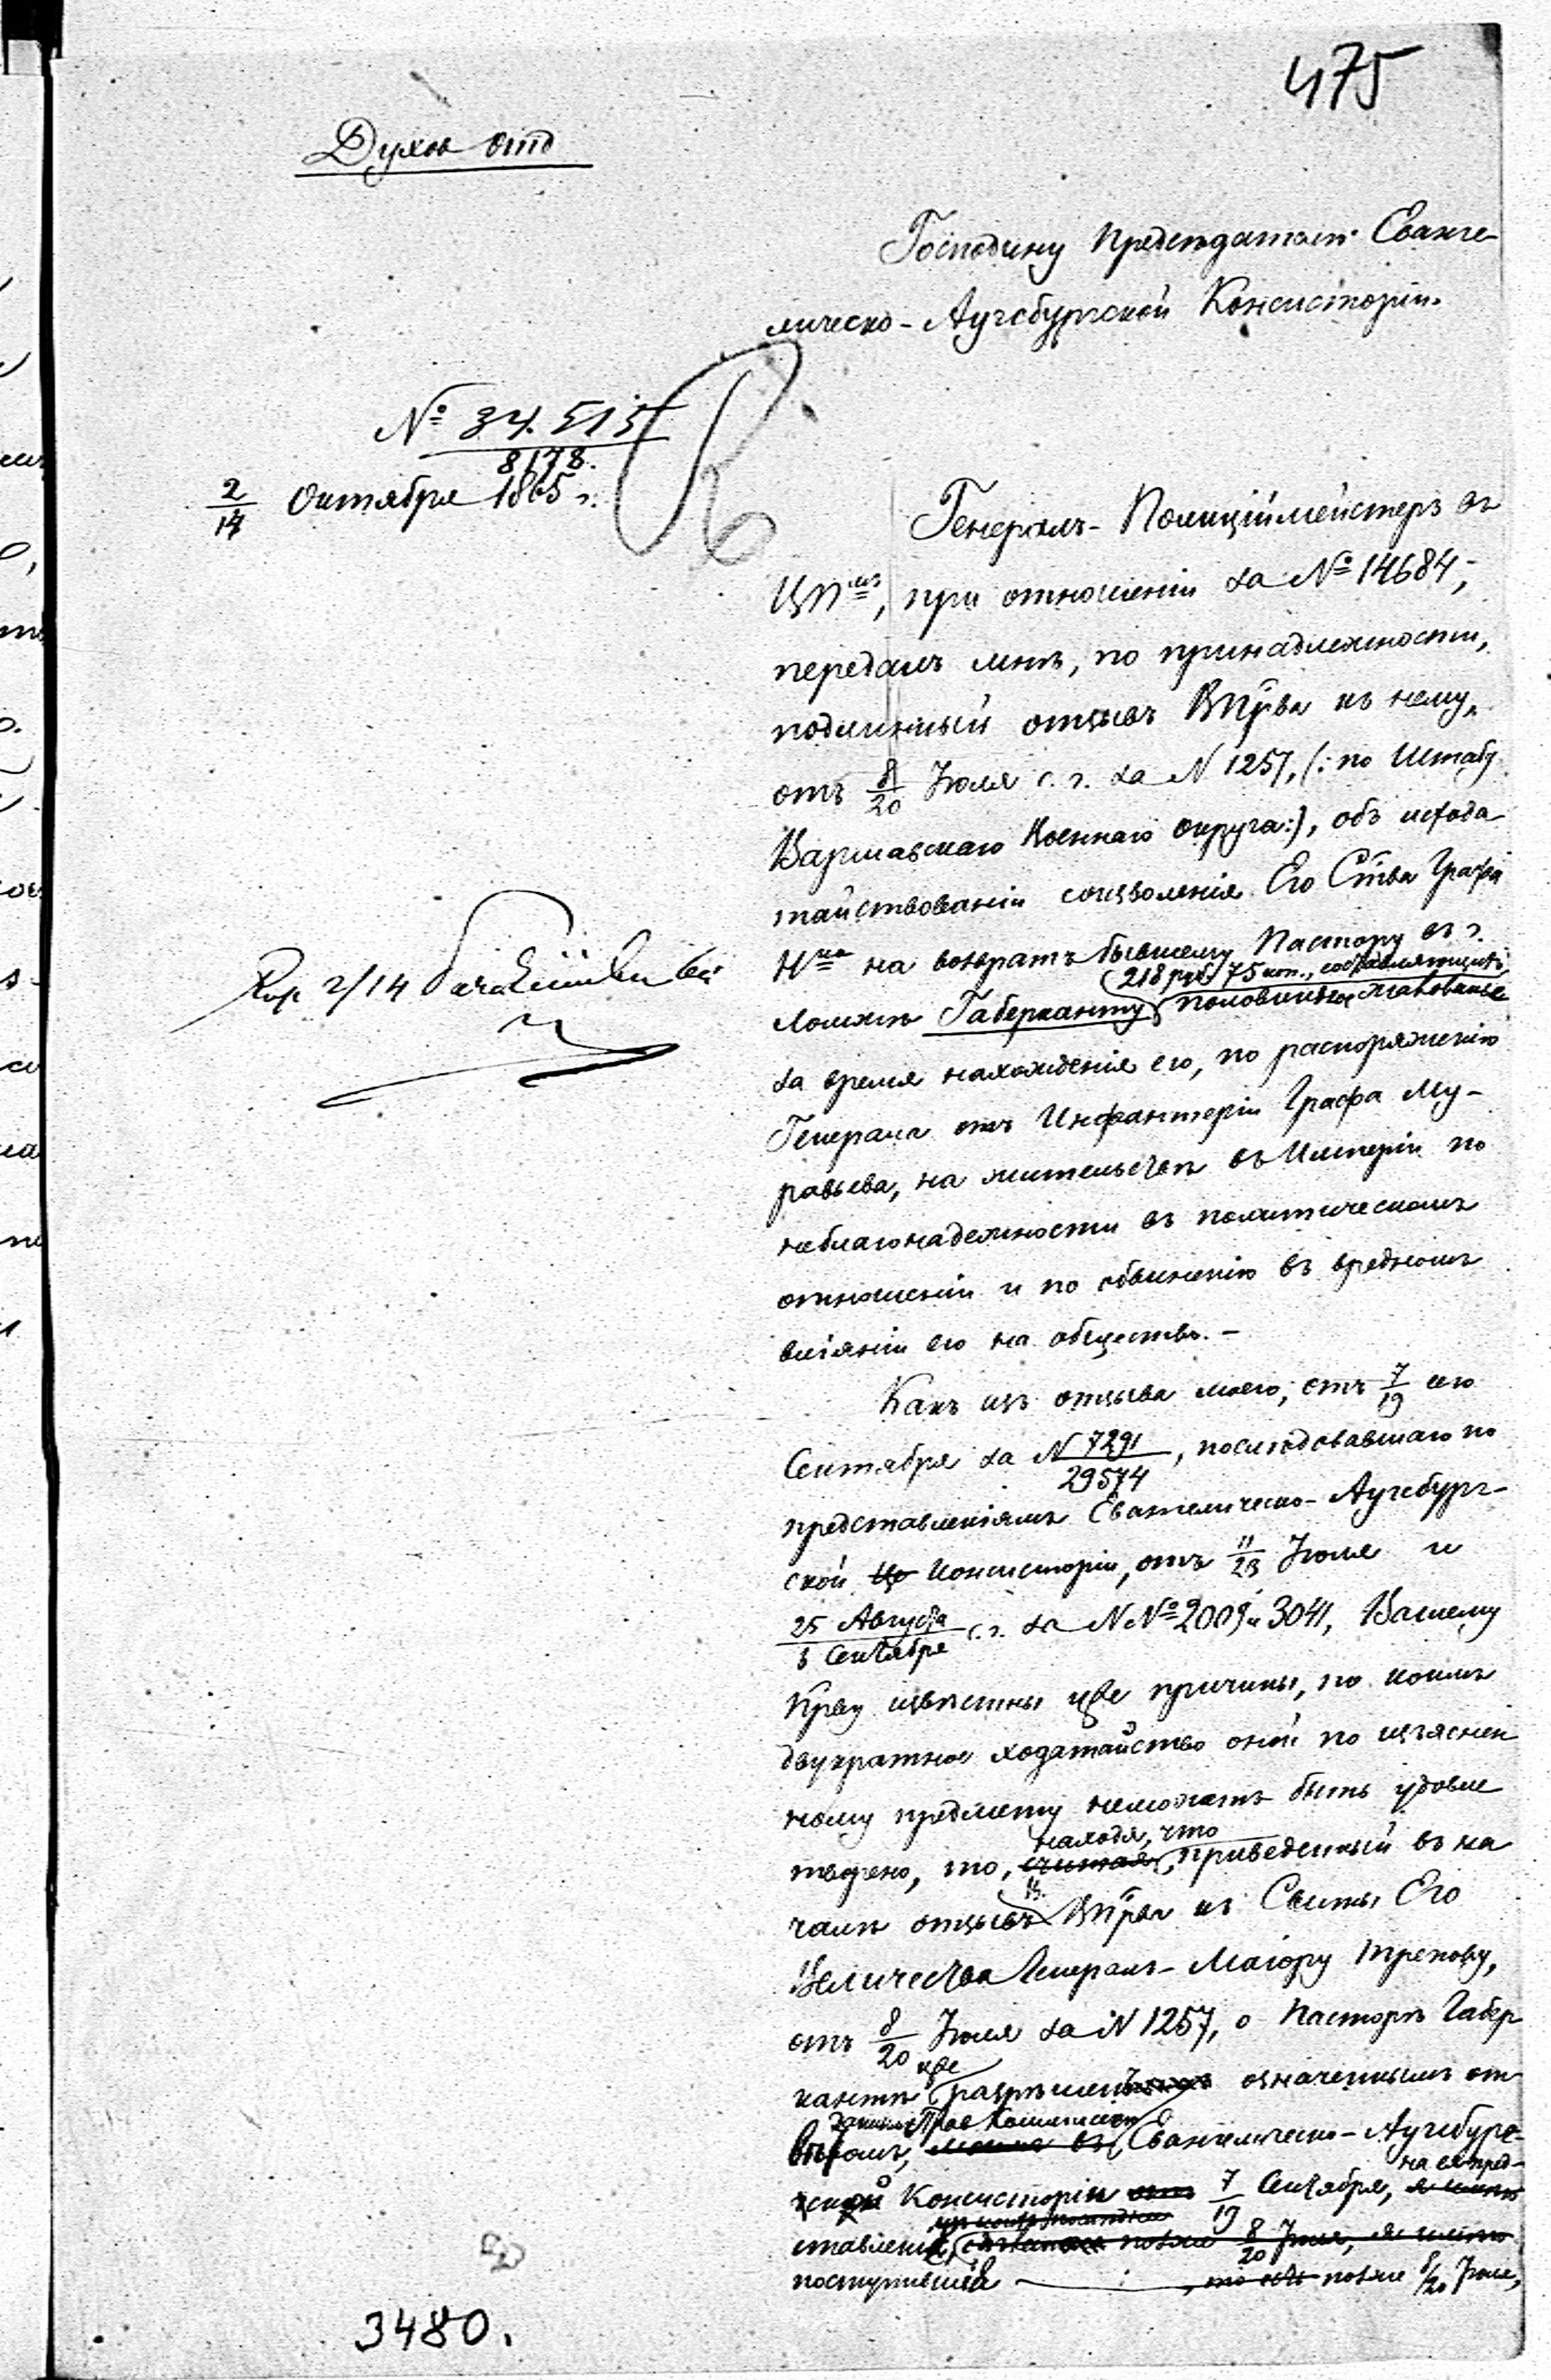 475
Духов отд
Господину Предсѣдател Еванге-
лическо-Аугсбургской Консисторіи.
№ 34.515
8178.
2/14 Октября 1865 г.
Генералъ-Полиціймейстеръ въ
при отношеніи за № 14684,
передалъ мнѣ, по принадлежности,
подлинный отзывъ ВПрва къ нему,
отъ 8/20 Іюля с. г. за N 1257, (: по Штабу
Варшавскаго Военнаго Округа:), объ исхода-
тайствованіи соизволенія Его Ства Графа
Нка на возвратъ бывшему Пастору въ г.
218 руб. 75 коп., составляющихъ
Ломжѣ Габерканту половины жалованье
за время нахожденія его, по распоряженію
Генерала отъ Инфантеріи Графа Му-
равьева, на жительствѣ въ Имперіи по
неблагонадежности въ политическомъ
отношеніи и по обвиненію въ вредномъ
вліяніи его на общество. -
Какъ изъ отзыва моего, отъ 7/19 сего
Сентября за N 7291/29574, послѣдовавшаго по
представленіямъ Евангелическо-Аугсбург-
ской Консисторіи, отъ 11/23 Іюля и
25 Августа/6 Сентября с. г. за N№ 2009 и 3041, Вашему
Прву извѣстны уже причины, по коимъ
двукратное ходатайство оной по изъяснен
ному предмету неможетъ быть удовле
находя, что
творено, то, считая, приведенный въ на
чалѣ отзывъ ВПрва къ Свиты Его
Величества Генералъ-Маіору Трепову,
отъ 8/20 Іюля за N 1257, о Пасторѣ Габер
уже
кантѣ разрѣшен означеннымъ от
Прав. Коммиссіею
Евангелическо-Аугсбург-
ской Консисторіи отъ 7/19 Сентября, на ея пред-
ставленія, позже 8/20 Іюля,
поступившія , позже 8/20 Іюля,
3480.